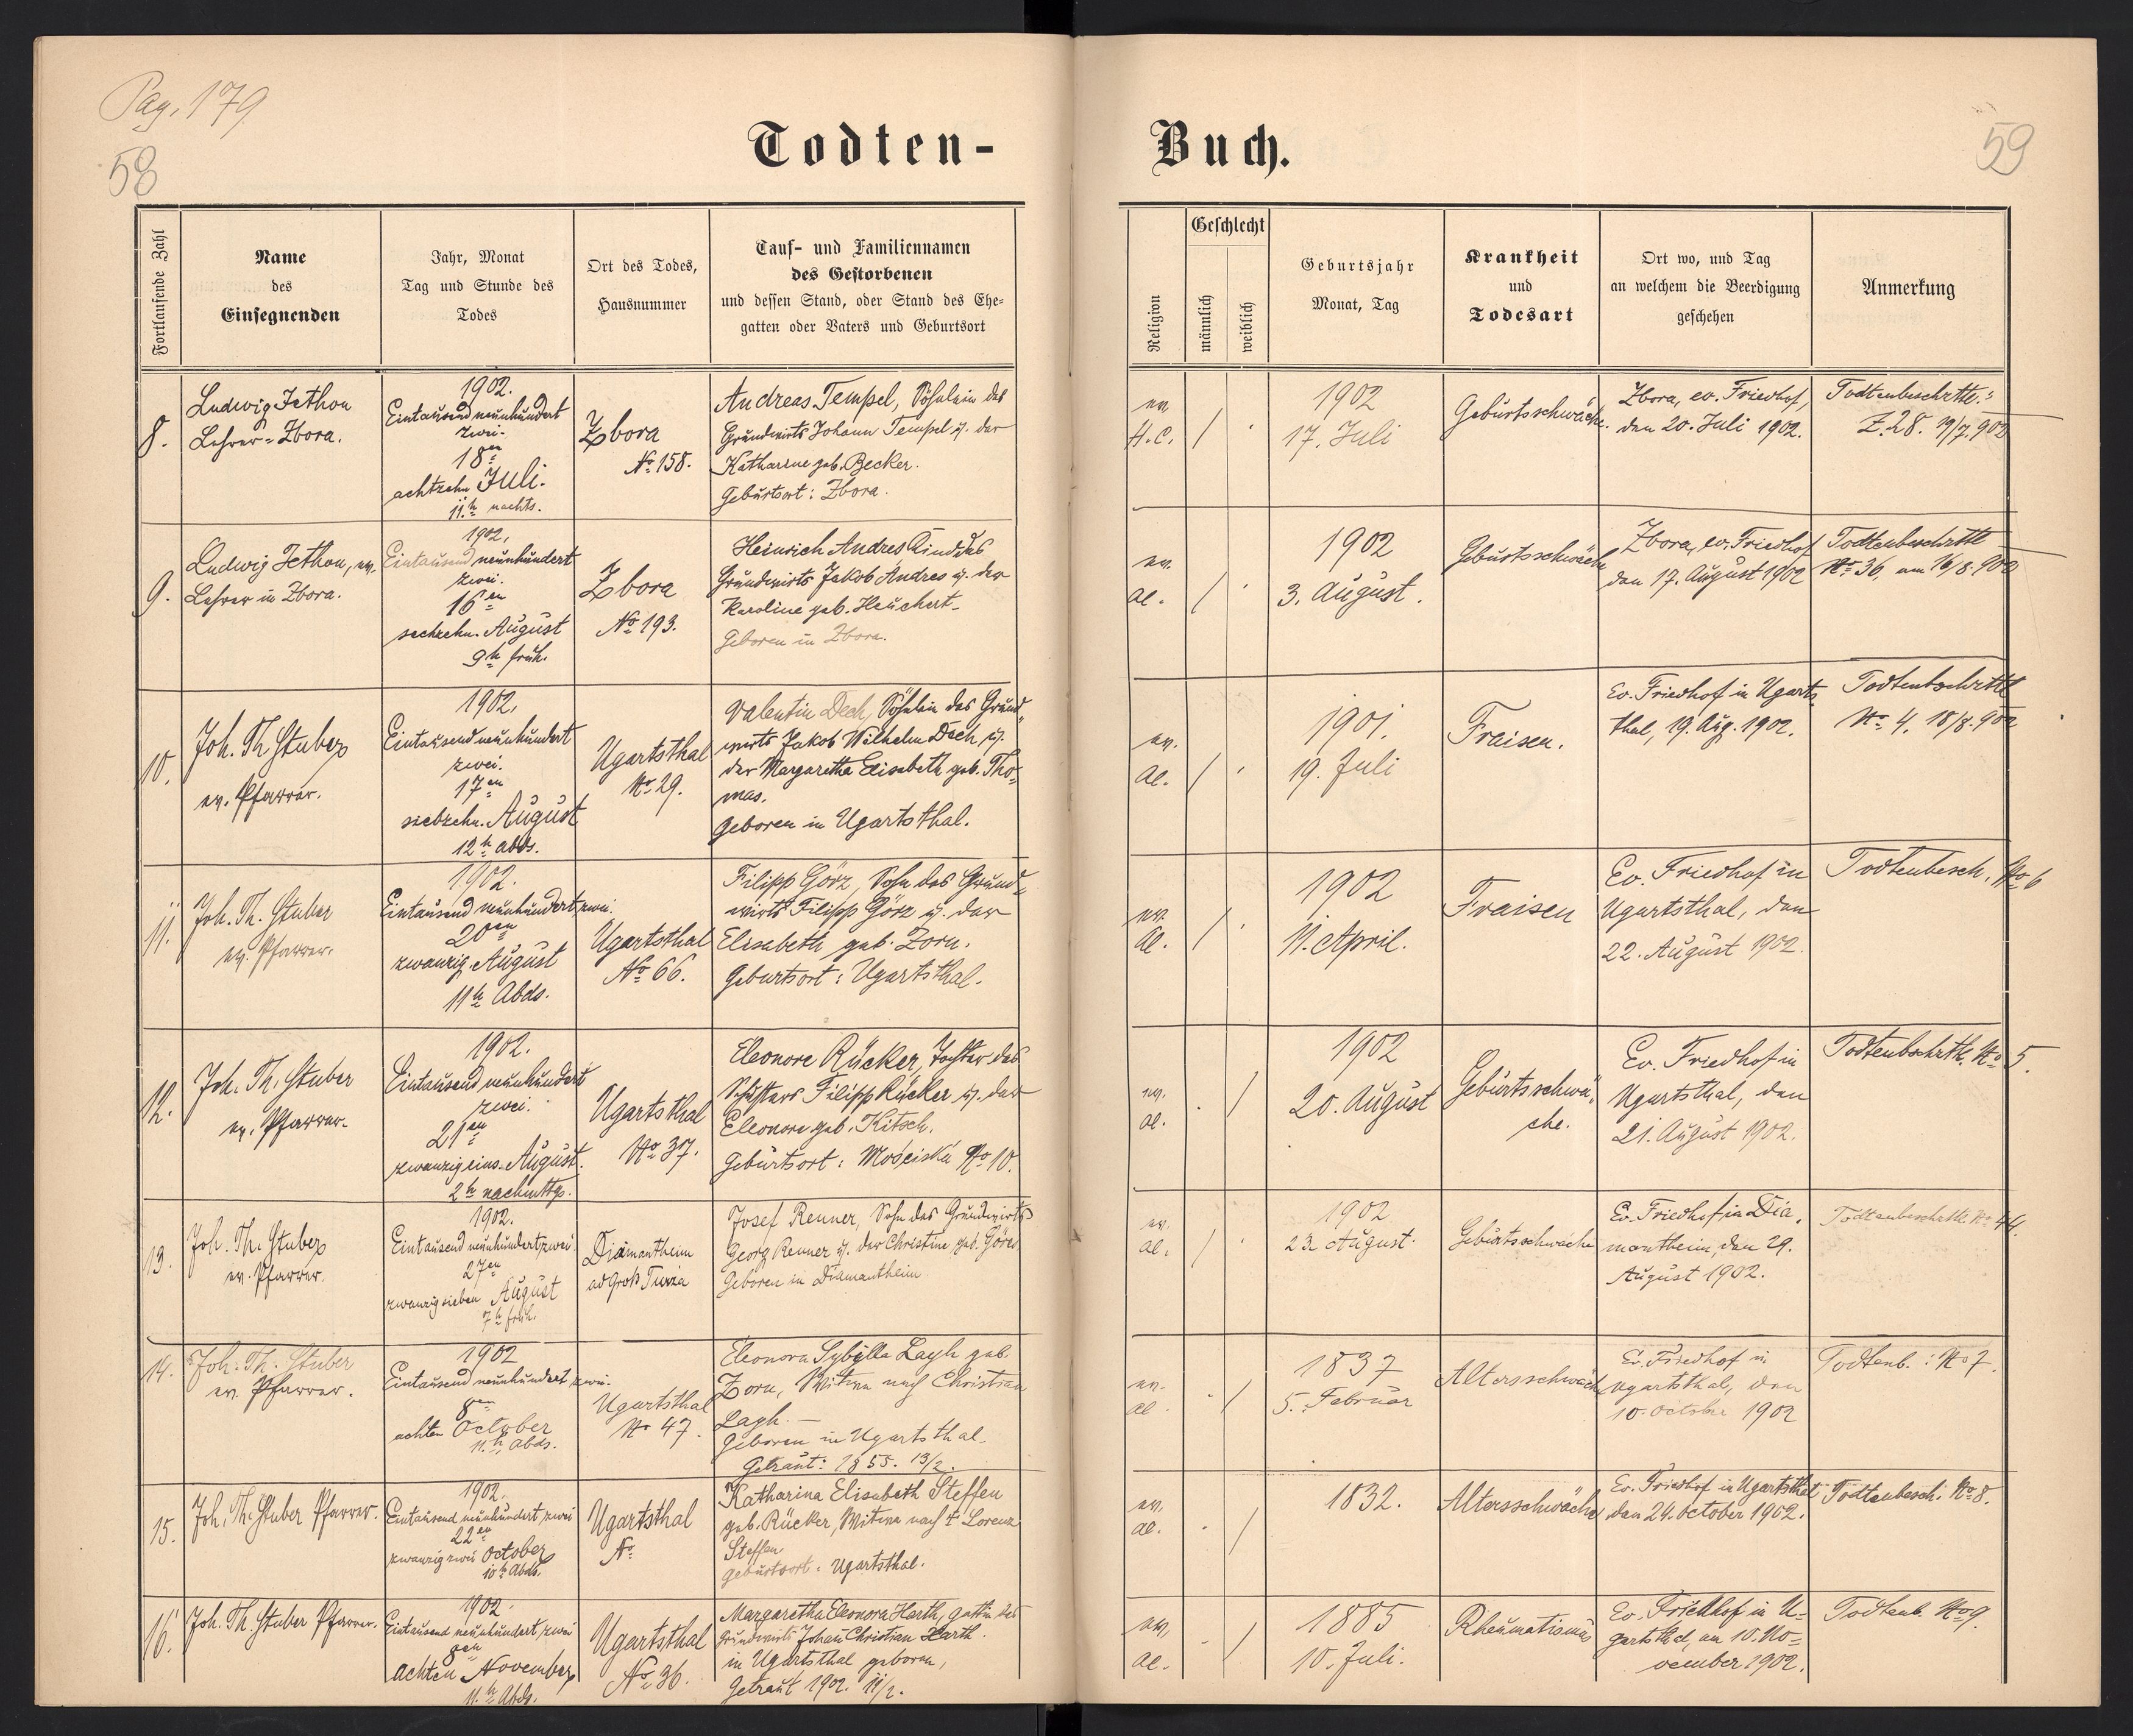 Pag. 179
58
59
Todten-
Buch.
Fortlaufende Zahl
Name
des
Einsegnenden
Jahr, Monat
Tag und Stunde des
Todes
Ort des Todes,
Hausnummer
Tauf- und Familiennamen
des Gestorbenen
und dessen Stand, oder Stand des Ehe-
gatten oder Vaters und Geburtsort
Religion
Geschlecht
männlich
weiblich
Geburtsjahr
Monat, Tag
Krankheit
und
Todesart
Ort wo, und Tag
an welchem die Beerdigung
geschehen
Anmerkung
8.
Ludwig Jethon
Lehrer - Zbora.
1902.
Eintausend neunhundert
zwei.
18en
achtzehn Juli.
11.h nachts.
Zbora
No 158.
Andreas Tempel, Söhnlein des
Grundwirts Johann Tempel u. der
Katharine geb. Becker.
Geburtsort: Zbora.
ev.
H.C.
/
1902
17. Juli
Geburtsschwäche.
Zbora, ev. Friedhof,
den 20. Juli 1902.
Todtenbeschrttl.:
Z. 28. 19/7. 902
9.
Ludwig Jethon, ev.
Lehrer in Zbora.
1902.
Eintausend neunhundert
zwei.
16en
sechzehn. August
9h früh.
Zbora
No 193.
Heinrich Andres Kind des
Grundwirts Jakob Andres u. der
Karoline geb. Heuchert.
Geboren in Zbora.
ev.
al.
/
1902
3. August.
Geburtsschwäche
Zbora, ev. Friedhof
den 17. August 1902
Todtenbeschrttl
No 36. am 16/8. 902
10.
Joh. Th. Stuber
ev. Pfarrer.
1902.
Eintausend neunhundert
zwei.
17en
siebzehn. August
12h abds.
Ugartsthal
No 29.
Valentin Dech, Söhnlein des Grund-
wirts Jakob Wilhelm Dech u.
der Margaretha Elisabeth geb. Tho-
mas.
Geboren in Ugartsthal.
ev.
al.
/
1901.
19. Juli
Fraisen.
Ev. Friedhof in Ugarts-
thal, 19. Aug. 1902.
Todtenbschrttl
No. 4. 18/8. 902
11.
Joh. Th. Stuber
ev. Pfarrer.
1902.
Eintausend neunhundert zwei.
20en
zwanzig. August
11h Abds.
Ugartsthal
No 66.
Filipp Görz, Sohn des Grund-
wirts Filipp Görz u. der
Elisabeth geb. Zorn.
Geburtsort: Ugartsthal.
ev.
al.
/
1902
11. April.
Fraisen
Ev. Friedhof in
Ugartsthal, den
22. August 1902.
Todtenbesch. No 6
12.
Joh. Th. Stuber
ev. Pfarrer.
1902.
Eintausend neunhundert
zwei.
21en
zwanzig eins. August.
2h nachmttgs.
Ugartsthal
No 37.
Eleonore Rücker, Tochter des
Filipp Rücker u. der
Eleonore geb. Kitsch.
Geburtsort: Mościska No 10.
ev.
al.
/
1902
20. August
Geburtsschwä-
che.
Ev. Friedhof in
Ugartsthal, den
21. August 1902.
Todtenbschrttl. No 5.
13.
Joh. Th. Stuber
ev. Pfarrer.
1902.
Eintausend neunhundert, zwei
27en
zwanzig sieben August
7h früh.
Diamantheim
ad Groß Turza
Josef Renner, Sohn des Grundwirts
Georg Renner u. der Christine geb. Görz
Geboren in Diamantheim
ev.
al.
/
1902
23. August.
Geburtsschwäche
Ev. Friedhof in Dia-
mantheim, den 29.
August 1902.
Todtenbeschrttl. No 44.
14.
Joh. Th. Stuber
ev. Pfarrer.
1902
Eintausend neunhundert zwei.
8en
achten October
11.h Abds.
Ugartsthal
No 47.
Eleonora Sybilla Lagh geb.
Zorn, Witwe nach Christian
Lagh. —
Geboren in Ugartsthal.
Getraut: 1855. 13/2.
ev.
al.
/
1837
5. Februar
Altersschwäche
Ev. Friedhof in
Ugartsthal, den
10. October 1902
Todtenb.: No 7.
15.
Joh. Th. Stuber Pfarrer.
1902.
Eintausend neunhundert, zwei
22en
zwanzig zwei October
10h Abds.
Ugartsthal
No
Katharina Elisabeth Steffen
geb. Rücker, Witwe nach † Lorenz
Steffen
Geburtsort: Ugartsthal.
ev.
al.
/
1832.
Altersschwäche
Ev. Friedhof in Ugartsthal
den 24. October 1902.
Todtenbesch. No 8.
16.
Joh. Th. Stuber Pfarrer.
1902.
Eintausend neunhundert, zwei
8en
achten November
11.h Abds.
Ugartsthal
No 36.
Margaretha Eleonora Harth, Gattin des
Grundwirts Johann Christian Harth.
in Ugartsthal geboren,
Getraut 1902. 11/2.
ev.
al.
/
1885
10. Juli.
Rheumatismus
Ev. Friedhof in U-
gartsthal, am 10. No-
vember 1902.
Todtenb. No 9.